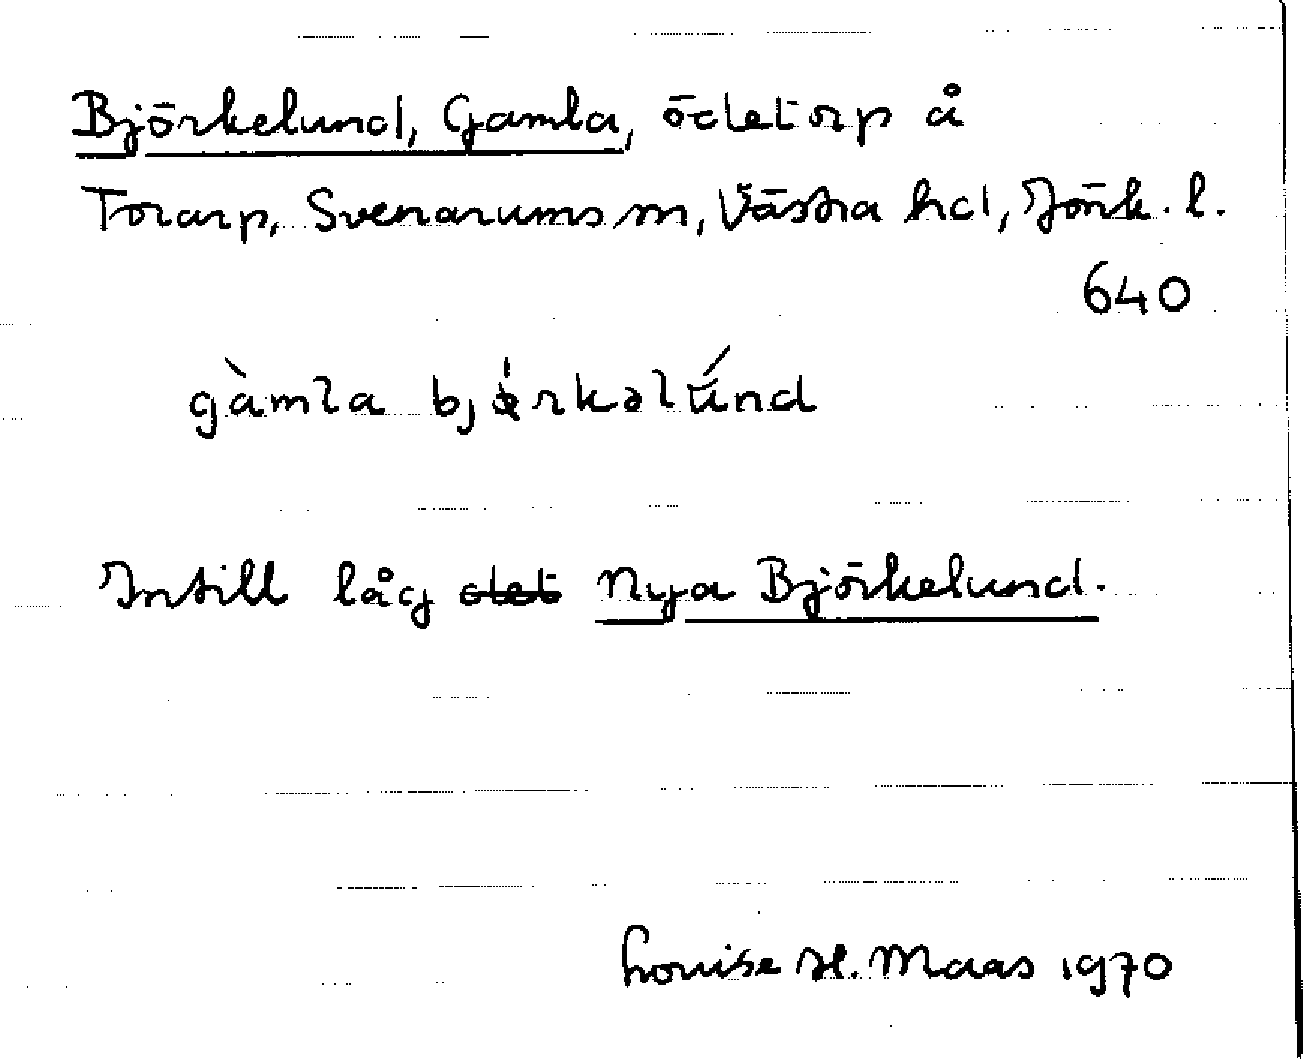 Björkelund, Gamla, ödetorp å
Torarp, Svenarums sn, Västra hd, Jönk. l.
640
gàmla bjɵ́rkəlúnd
Intill låg det Nya Björkelund.
Louise H. Maas 1970